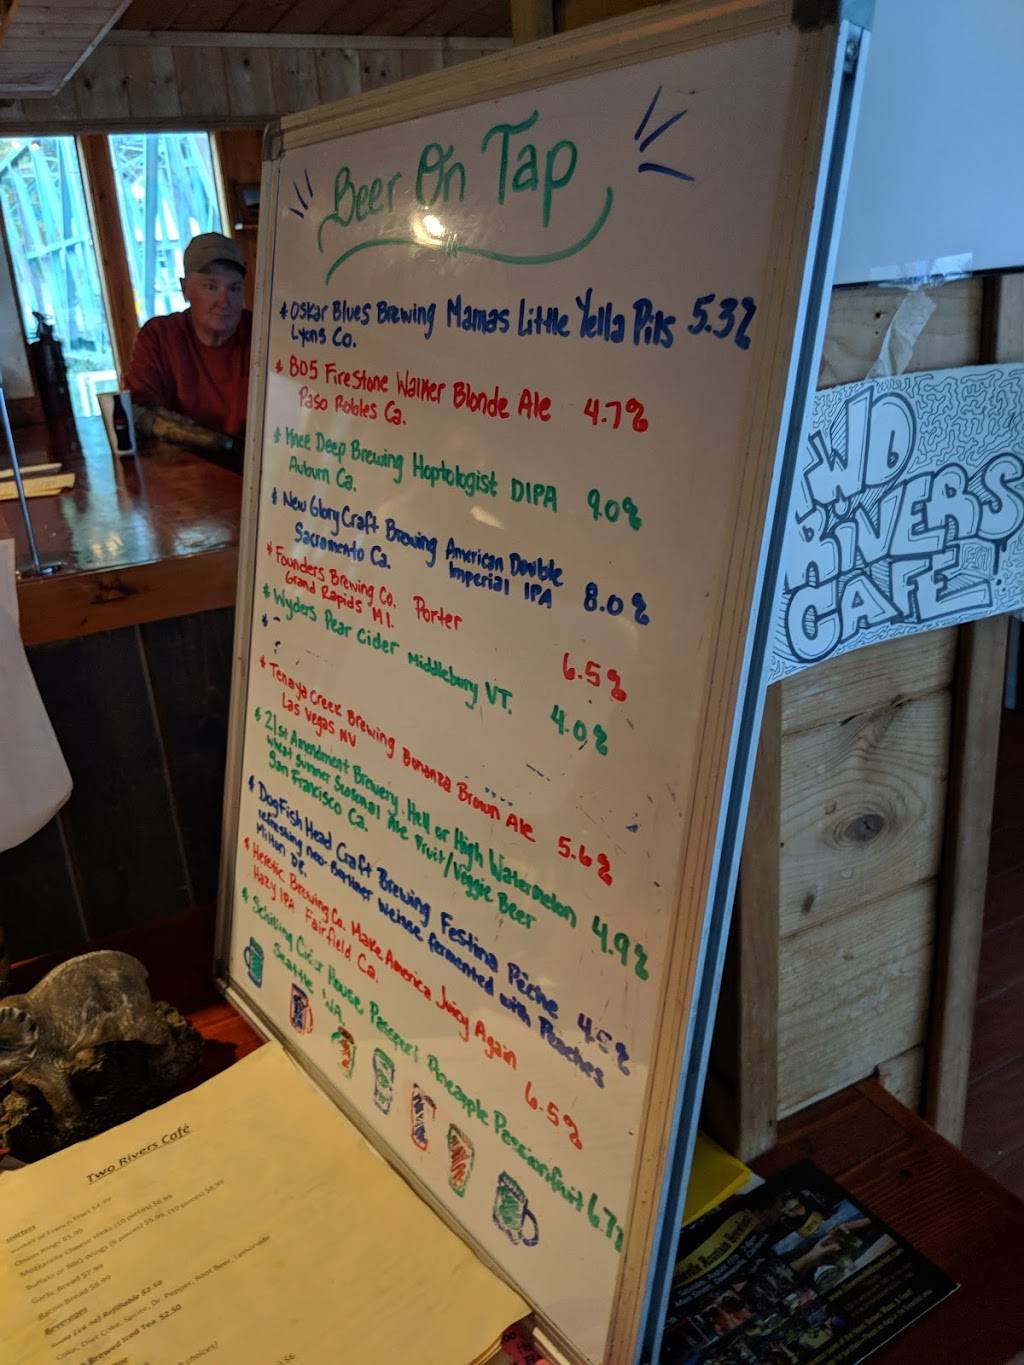 Beer On Tap
* Oskar Blues Brewing Mamas Little Yella Pils 5.3%
Lyons Co.
* 805 Firestone Walker Blonde Ale 4.7%
Paso Robles Ca.
* Knee Deep Brewing Hoptologist DIPA 9.0%
Auburn Ca.
* New Glory Craft Brewing American Double
Imperial IPA 8.0%
Sacramento Ca.
* Founders Brewing Co. Porter 6.5%
Grand Rapids MI.
* Wyders Pear Cider Middlebury VT. 4.0%
* Tenaya Creek Brewing Bonanza Brown Ale 5.6%
Las Vegas NV
* 21st Amendment Brewery, Hell or High Watermelon 4.9%
Wheat Summer Seasonal Ale Fruit/Veggie Beer
San Francisco Ca.
* Dogfish Head Craft Brewing Festina Pèche 4.5%
refreshing neo-Berliner Weisse fermented with Peaches
Milton DE.
* Heretic Brewing Co. Make America Juicy Again 6.5%
Hazy IPA Fairfield Ca.
* Schilling Cider House, Passport Pineapple Passionfruit 6.7%
Seattle WA
TWO
RIVERS
CAFE
Two Rivers Café
Onion Rings $5.99
Mozzarella Cheese sticks (10 pieces) $6.99
Buffalo or BBQ Wings (6 pieces) $5.99, (10 pieces) $8.99
Garlic Bread $7.99
Bacon Bread $8.99
Beverages
Coke, Diet Coke, Sprite, Dr. Pepper, Root Beer, Lemonade
Brewed Iced Tea $2.50